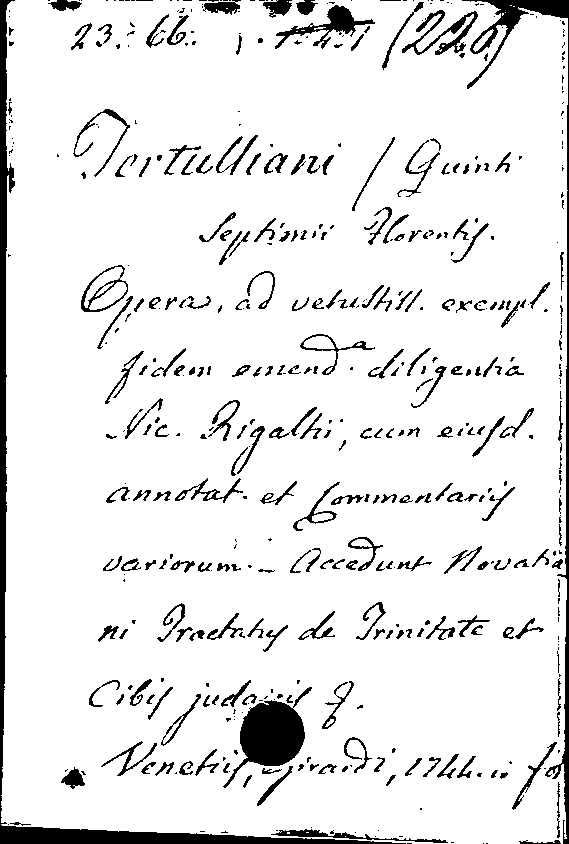 23. 66. (226)
Tertulliani / Quinti
Septimii Florentis.
Opera, ad vetustiss. exempl.
fidem emend.a diligentia
Nic. Rigaltii, cum eiusd.
annotat. et Commentariis
variorum. - Accedunt Novatia
ni Tractatus de Trinitate et
Cibis judaicis
Venetiis, Girardi, 1744. in fol